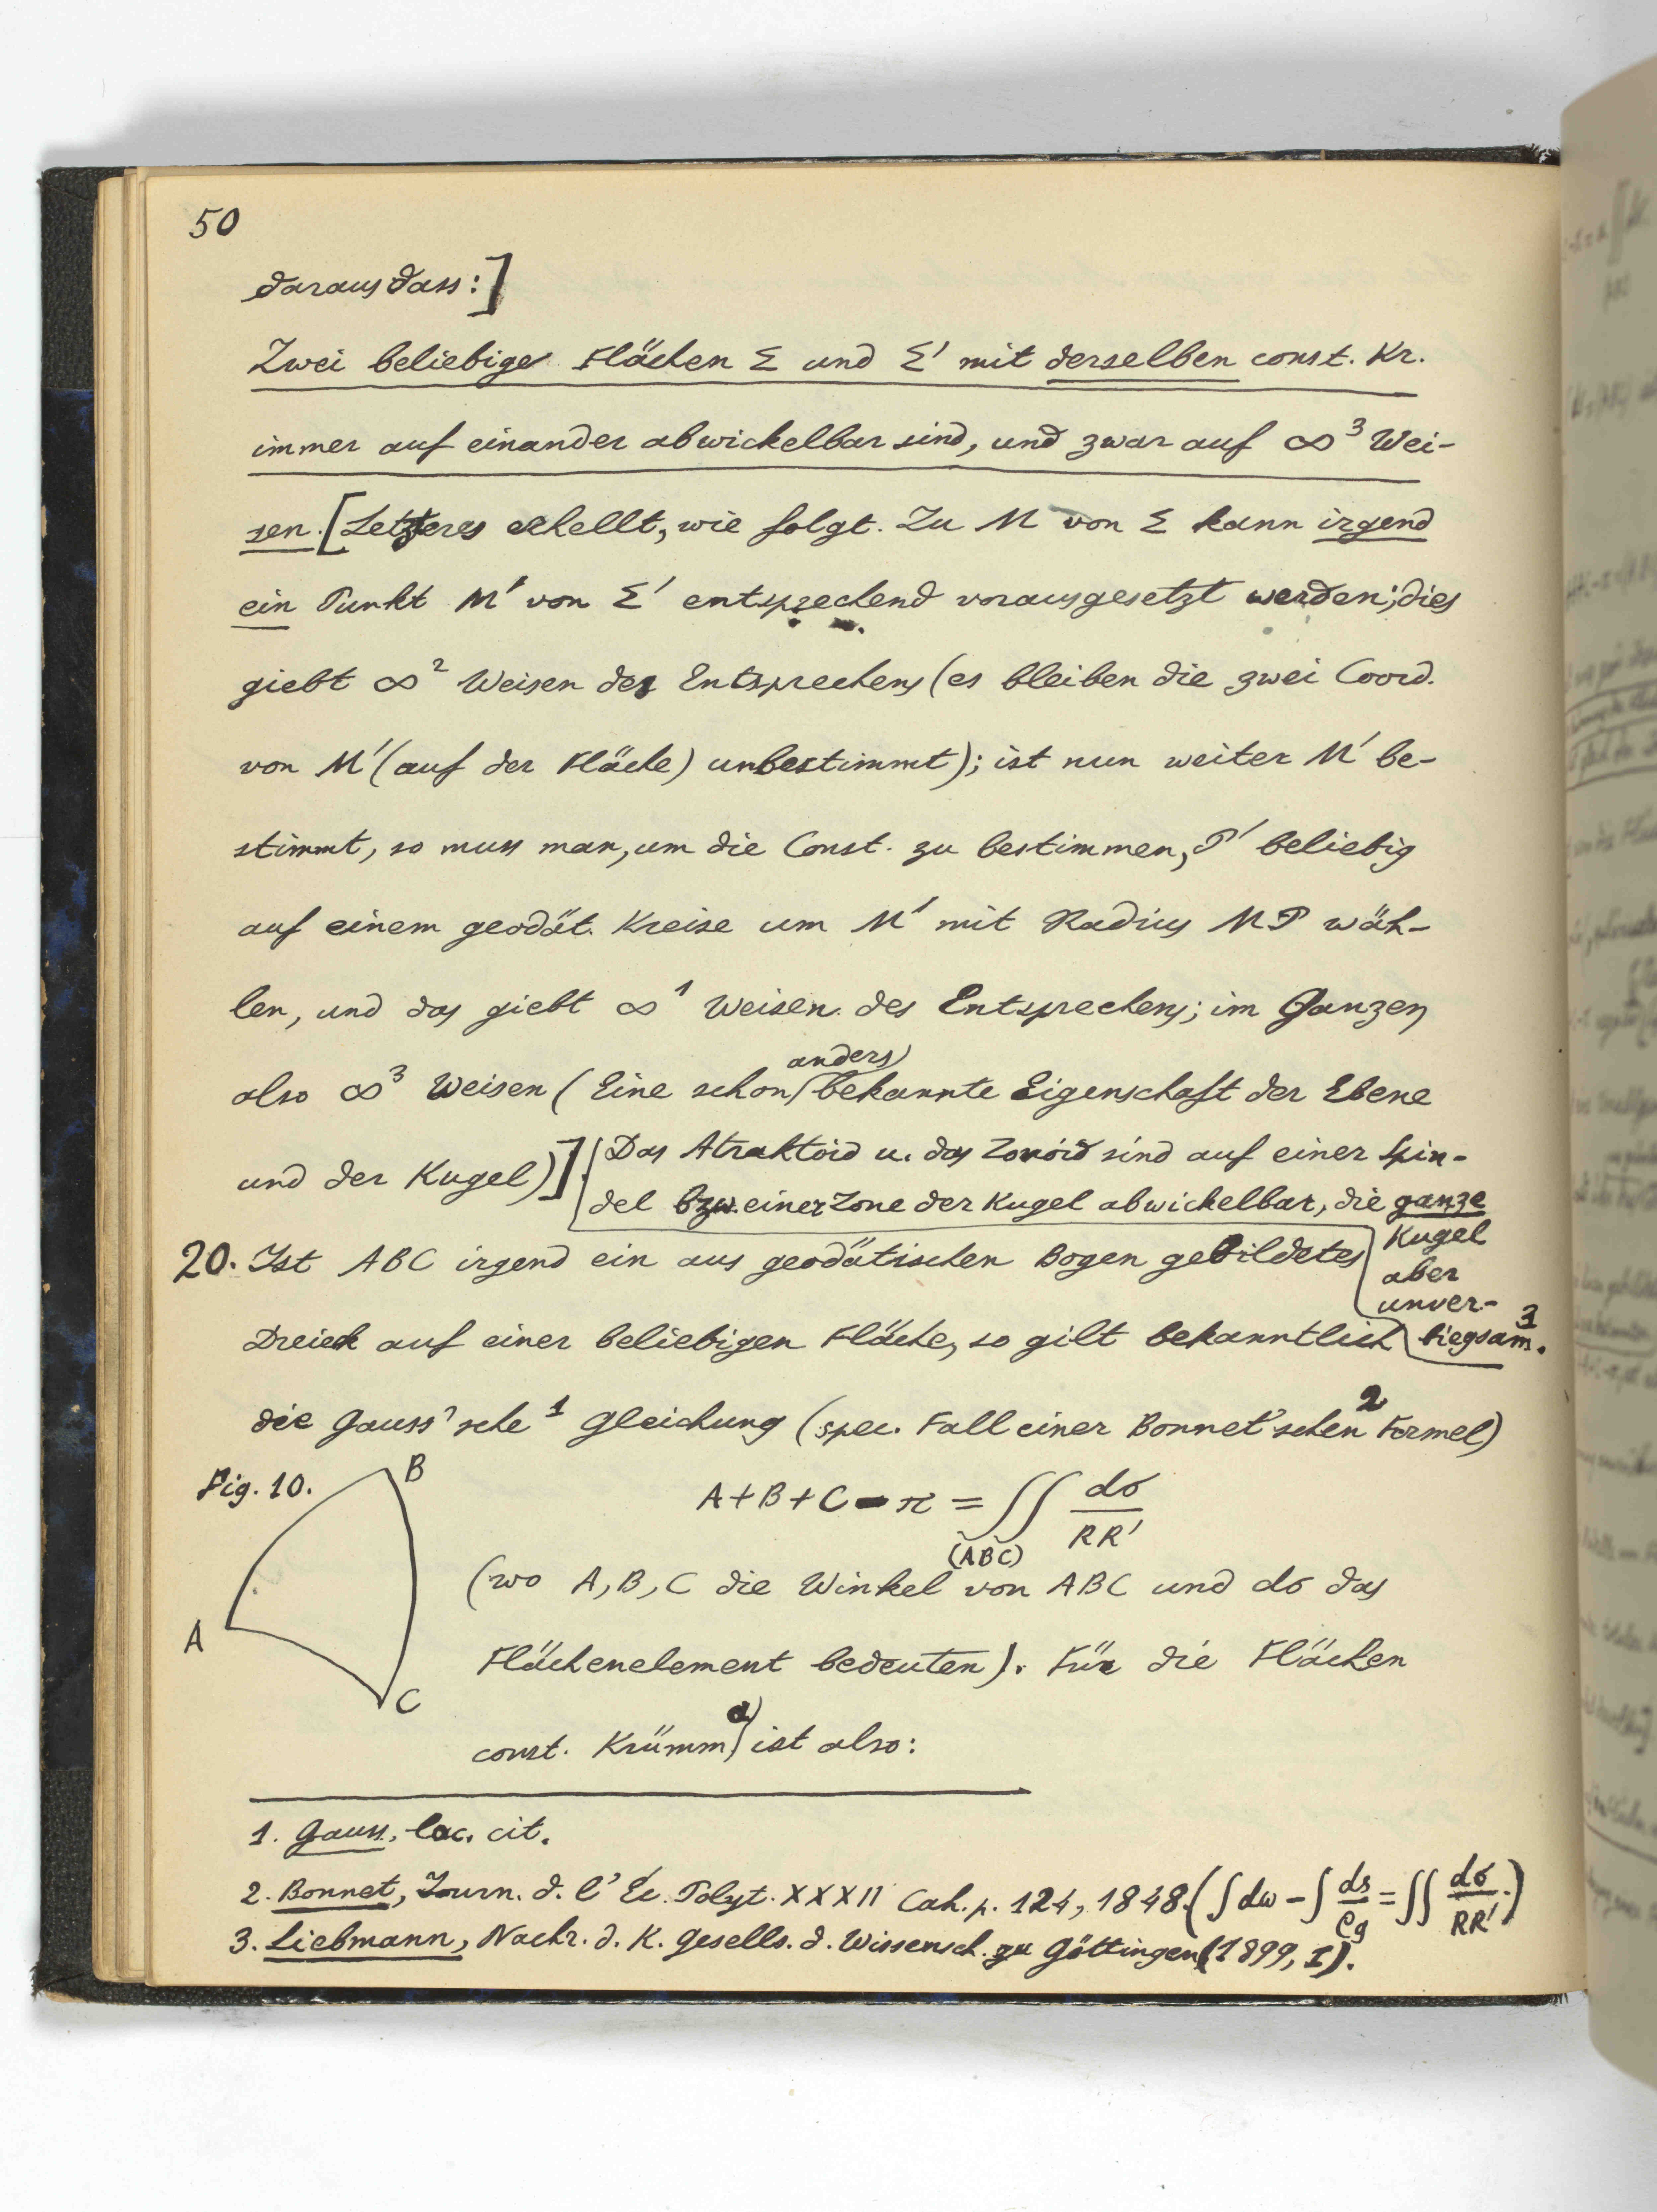 50
daraus dass:]
Zwei beliebige Flächen Σ und Σ' mit derselben const. Kr.
immer auf einander abwickelbar sind, und zwar auf ∞³ Wei-
sen. [Letzteres erhellt, wie folgt. Zu M von Σ kann irgend
ein Punkt M' von Σ' entsprechend vorausgesetzt werden; dies
giebt ∞² Weisen des Entsprechens (es bleiben die zwei Coord.
von M' (auf der Fläche) unbestimmt); ist nun weiter M' be-
stimmt, so muss man, um die Const. zu bestimmen, P' beliebig
auf einem geodät. Kreise um M' mit Radius MP wäh-
len, und das giebt ∞¹ Weisen des Entsprechens; im Ganzen
also ∞³ Weisen (Eine schon anders bekannte Eigenschaft der Ebene
und der Kugel)].
Das Atraktoid u. das Zonoid sind auf einer Spin-
del bzw. einer Zone der Kugel abwickelbar, die ganze
Kugel
aber
unver-
biegsam³.
20. Ist ABC irgend ein aus geodätischen Bogen gebildetes
Dreieck auf einer beliebigen Fläche, so gilt bekanntlich
die Gauss'sche ¹ Gleichung (spec. Fall einer Bonnet'schen ² Formel)
Fig. 10.
B
A
C
A+B+C-π = ∫∫ dσ/RR'
(ABC)
(wo A, B, C die Winkel von ABC und dσ das
Flächenelement bedeuten). Für die Flächen
const. Krümm. a) ist also:
1. Gauss, loc. cit.
2. Bonnet, Journ. d. l'Éc. Polyt. XXXII Cah. p. 124, 1848. (∫dω - ∫ds/ρg = ∫∫ dσ/RR'.)
3. Liebmann, Nachr. d. K. Gesells. d. Wissensch. zu Göttingen (1899, I).